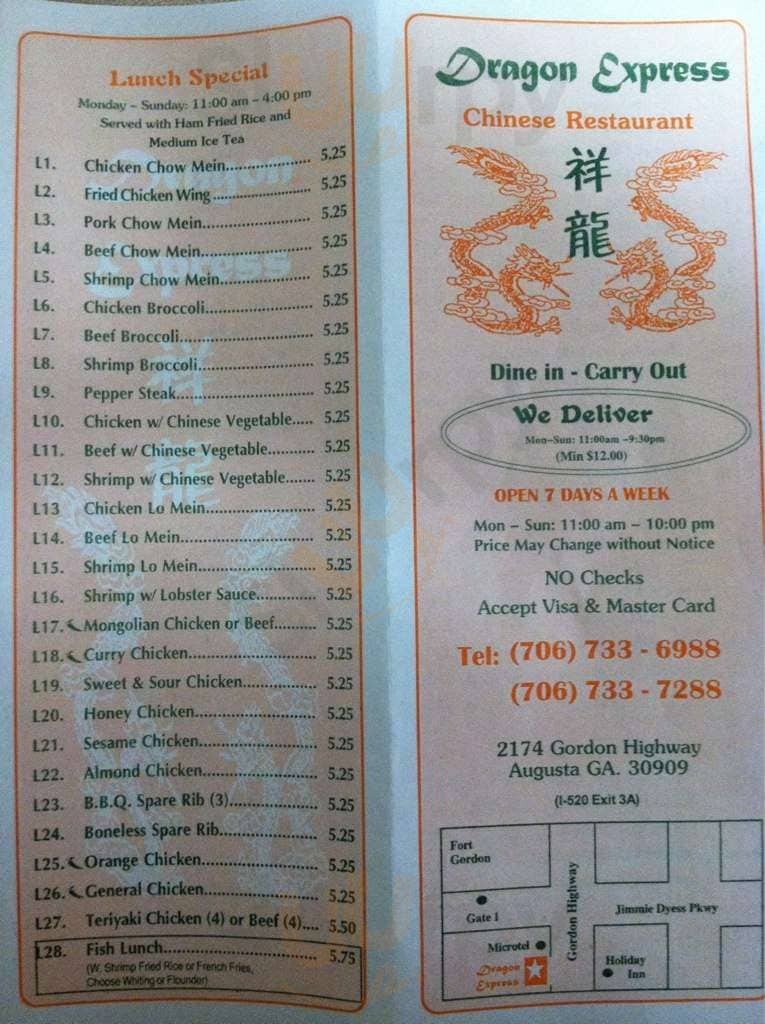 Lunch Special
Monday - Sunday: 11:00 am - 4:00 pm
Served with Ham Fried Rice and
Medium Ice Tea
L1. Chicken Chow Mein.................... 5.25
L2. Fried Chicken Wing....................... 5.25
L3. Pork Chow Mein......................... 5.25
L4. Beef Chow Mein......................... 5.25
L5. Shrimp Chow Mein..................... 5.25
L6. Chicken Broccoli......................... 5.25
L7. Beef Broccoli.............................. 5.25
L8. Shrimp Broccoli.......................... 5.25
L9. Pepper Steak............................... 5.25
L10. Chicken w/ Chinese Vegetable..... 5.25
L11. Beef w/ Chinese Vegetable........... 5.25
L12. Shrimp w/ Chinese Vegetable....... 5.25
L13 Chicken Lo Mein........................ 5.25
L14. Beef Lo Mein.............................. 5.25
L15. Shrimp Lo Mein.......................... 5.25
L16. Shrimp w/ Lobster Sauce............. 5.25
L17. Mongolian Chicken or Beef......... 5.25
L18. Curry Chicken............................ 5.25
L19. Sweet & Sour Chicken................. 5.25
L20. Honey Chicken........................... 5.25
L21. Sesame Chicken.......................... 5.25
L22. Almond Chicken......................... 5.25
L23. B.B.Q. Spare Rib (3).................... 5.25
L24. Boneless Spare Rib...................... 5.25
L25. Orange Chicken.......................... 5.25
L26. General Chicken......................... 5.25
L27. Teriyaki Chicken (4) or Beef (4).... 5.50
L28. Fish Lunch.................................. 5.75
(W. Shrimp Fried Rice or French Fries,
Choose Whiting or Flounder)
Dragon Express
Chinese Restaurant
祥
龍
Dine in - Carry Out
We Deliver
Mon-Sun: 11:00am -9:30pm
(Min $12.00)
OPEN 7 DAYS A WEEK
Mon - Sun: 11:00 am - 10:00 pm
Price May Change without Notice
NO Checks
Accept Visa & Master Card
Tel: (706) 733 - 6988
(706) 733 - 7288
2174 Gordon Highway
Augusta GA. 30909
(I-520 Exit 3A)
Fort
Gordon
Gate 1
Gordon Highway
Jimmie Dyess Pkwy
Microtel
Dragon
Express
Holiday
Inn